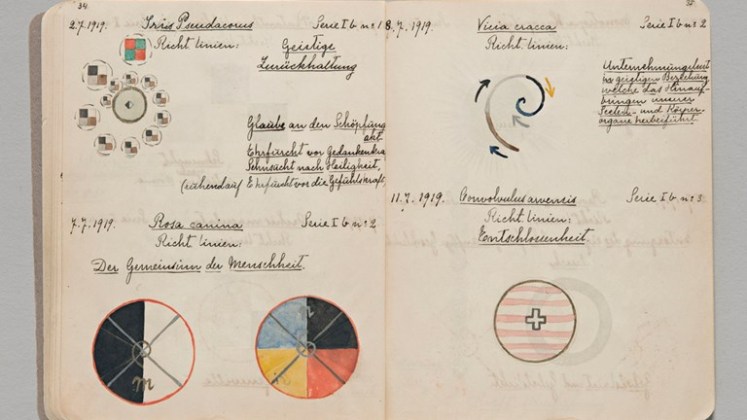 34
2.7.1919. Iris Pseudacorus Serie I b nº 1
Richt linien:
Geistige
Zurückhaltung
Glaube an den Schöpfung
akt
Ehrfurcht vor Gedankenkra
Sehnsucht nach Heiligkeit,
(ruhend auf Ehrfurcht vor die Gefühlskraft
7.7.1919. Rosa canina Serie I b nº 2
Richt linien:
Der Gemeinsinn der Menschheit.
m
n
8.7.1919. Vicia cracca Serie I b nº 2
Richt linien:
Unternehmungslust
in geistigen Beziehung
welche das Hinauf-
bringen unserer
Seelen- und Körper-
organe herbeiführt.
11.7.1919. Convolvulus arvensis Serie I b nº 3
Richt linien:
Entschlossenheit.